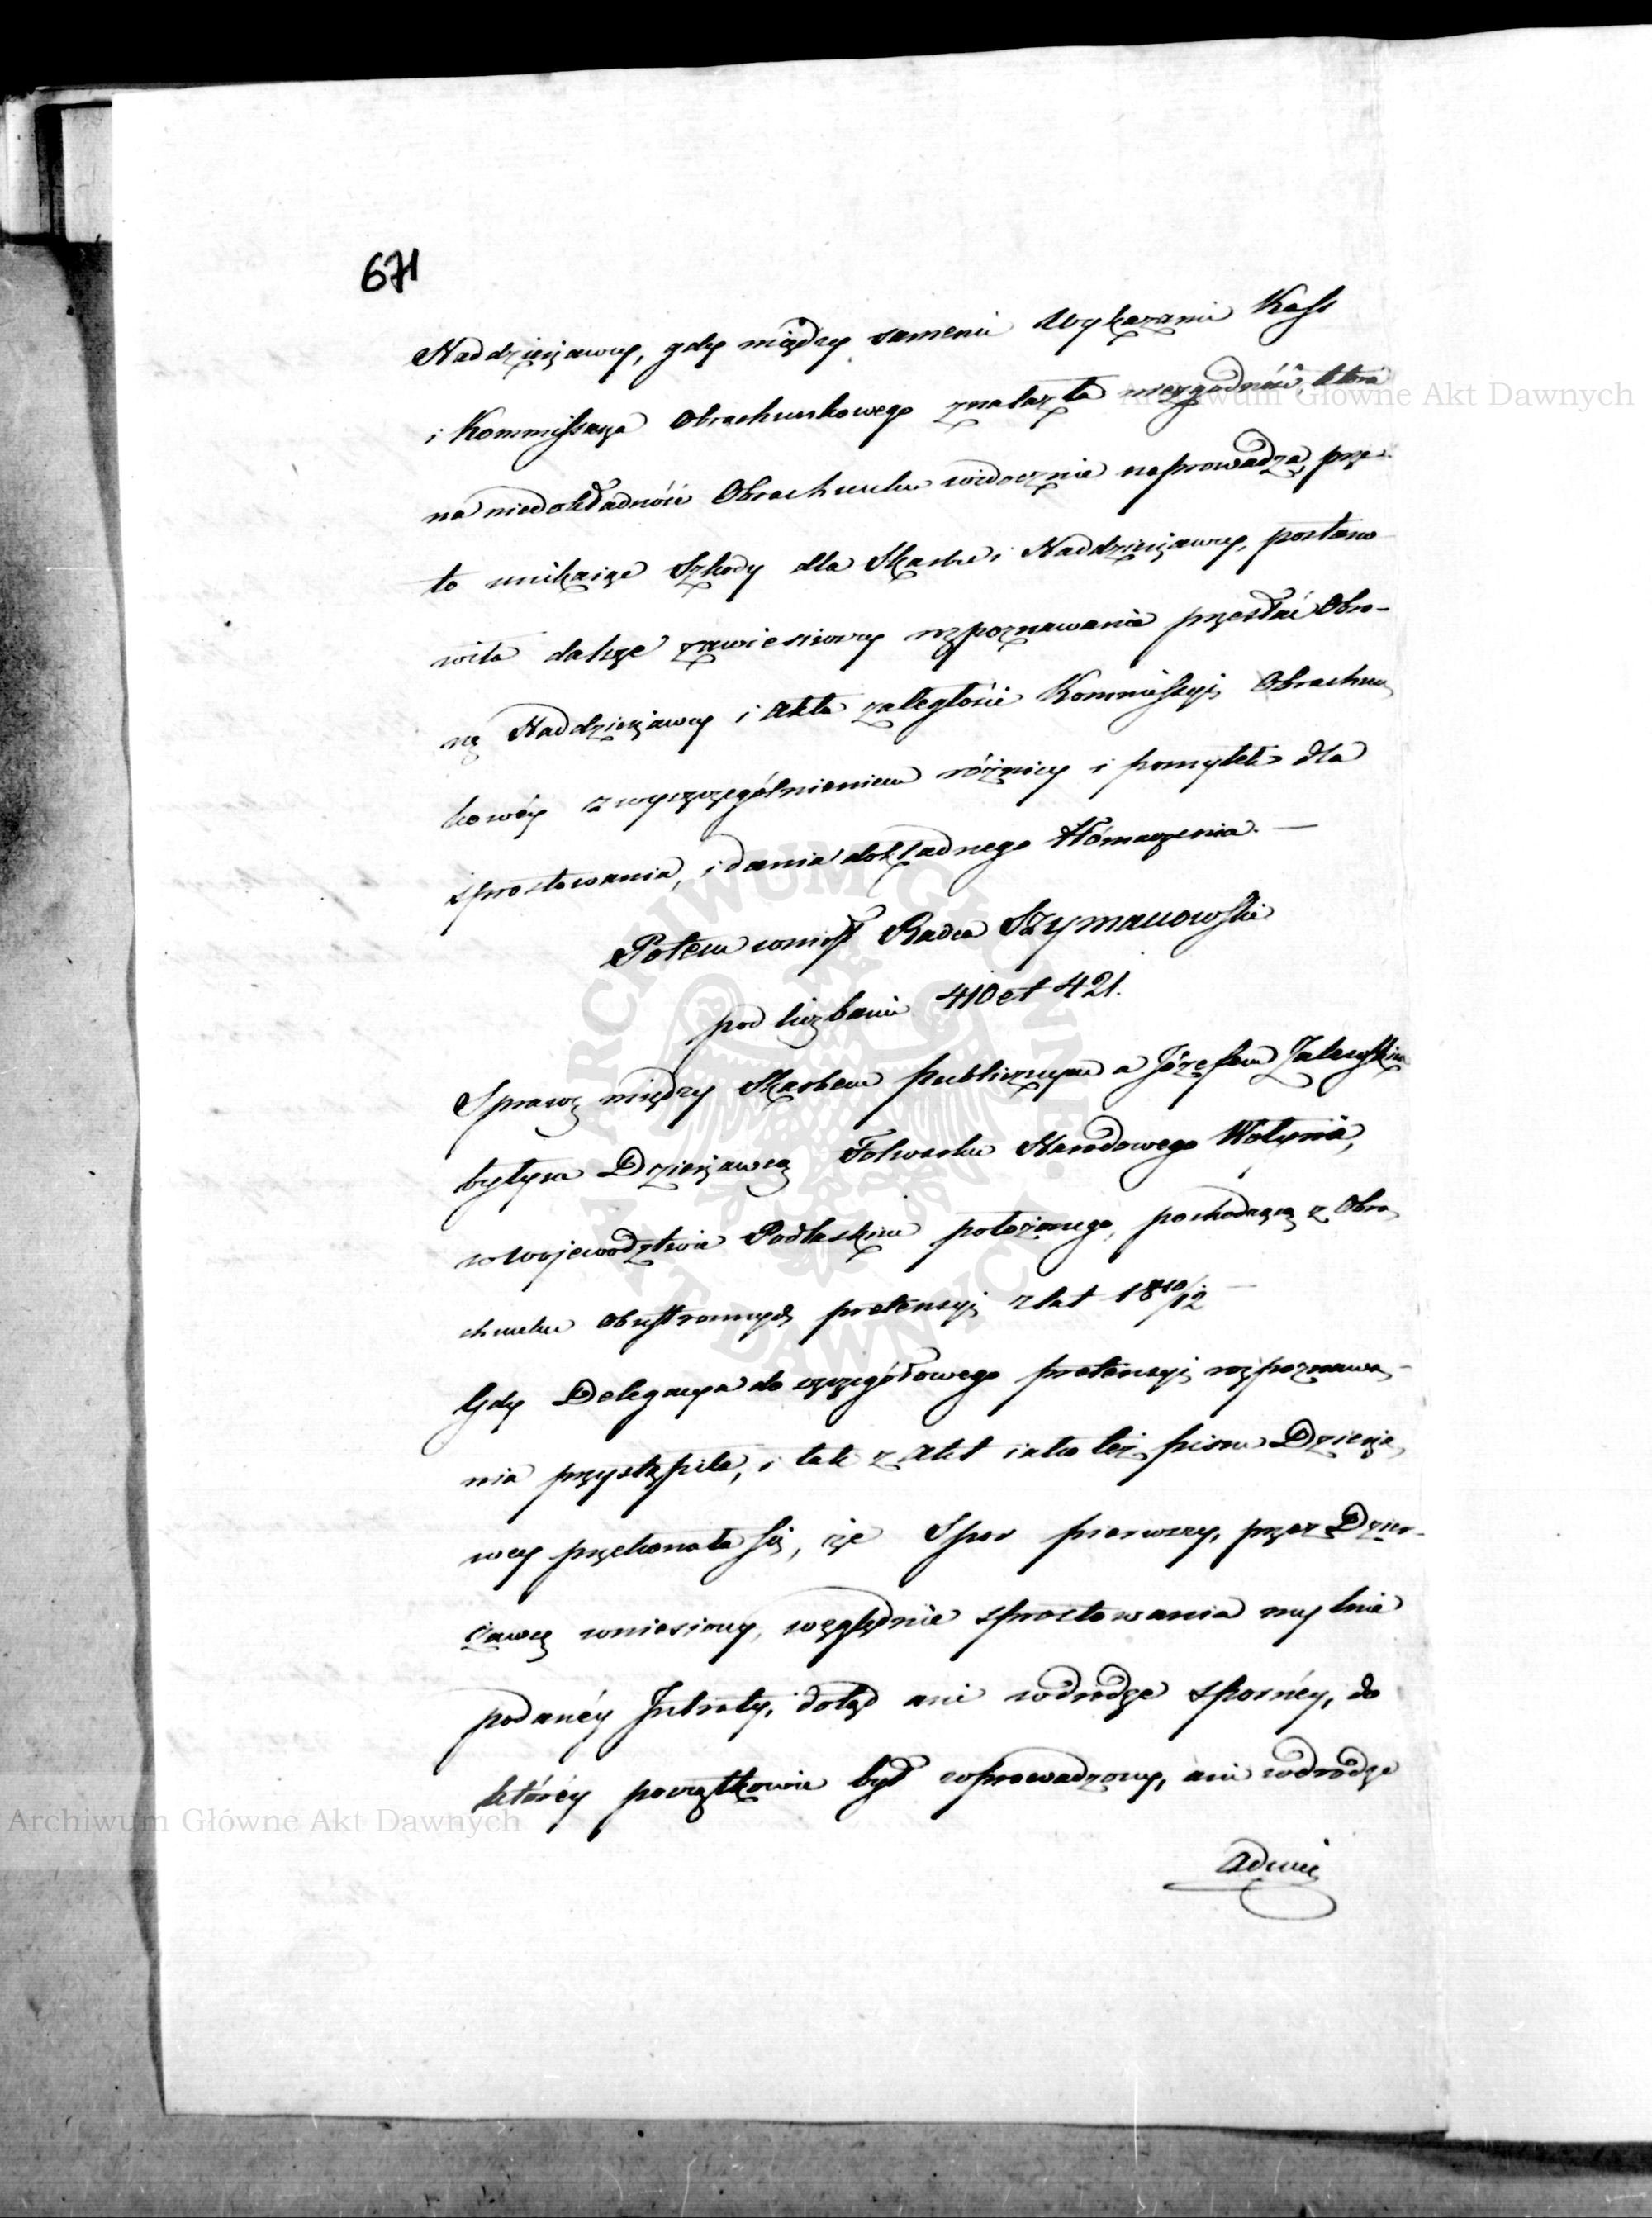 671
Naddzierżawcy, gdy między samemi Wykazami Kass
i Kommissarza Obrachunkowego znalazła niezgodność, która
na niedokładność Obrachunku widocznie naprowadza, prze-
to unikaiąc Szkody dla Skarbu i Naddzierżawcy, postano
wiła dalsze zawiesiwszy rozpoznawanie przesłać Obro-
nę Naddzierżawcy i Akta zaległości Kommissyi Obrachun
kowéy z wyszczególnieniem różnicy i pomyłek dla
sprostowania, i dania dokładnego tłómaczenia. —
Potem wniósł Radca Szymanowski
pod liczbami 410 et 421.
Sprawę między Skarbem Publicznym a Józefem Zalewskim
byłym Dzierżawcą Folwarku Narodowego Wołynia,
w Województwie Podlaskim położonego, pochodzącą z Obra
chunku obustronnych pretensyi z lat 1810/12 —
Gdy Delegacya do szczegółowego pretensyi rozpoznawa-
nia przystąpiła, i tak z Akt iako też pism Dzierża
wcy przekonała się, że Spór pierwszy, przez Dzier-
żawcę wniesiony, względnie sprostowania mylnie
podanéy Intraty, dotąd ani w drodze spornéy, do
któréy początkowie był wprowadzony, ani w drodze
Admi
Archiwum Główne Akt Dawnych
Archiwum Główne Akt Dawnych
ARCHIWUM GŁÓWNE AKT DAWNYCH